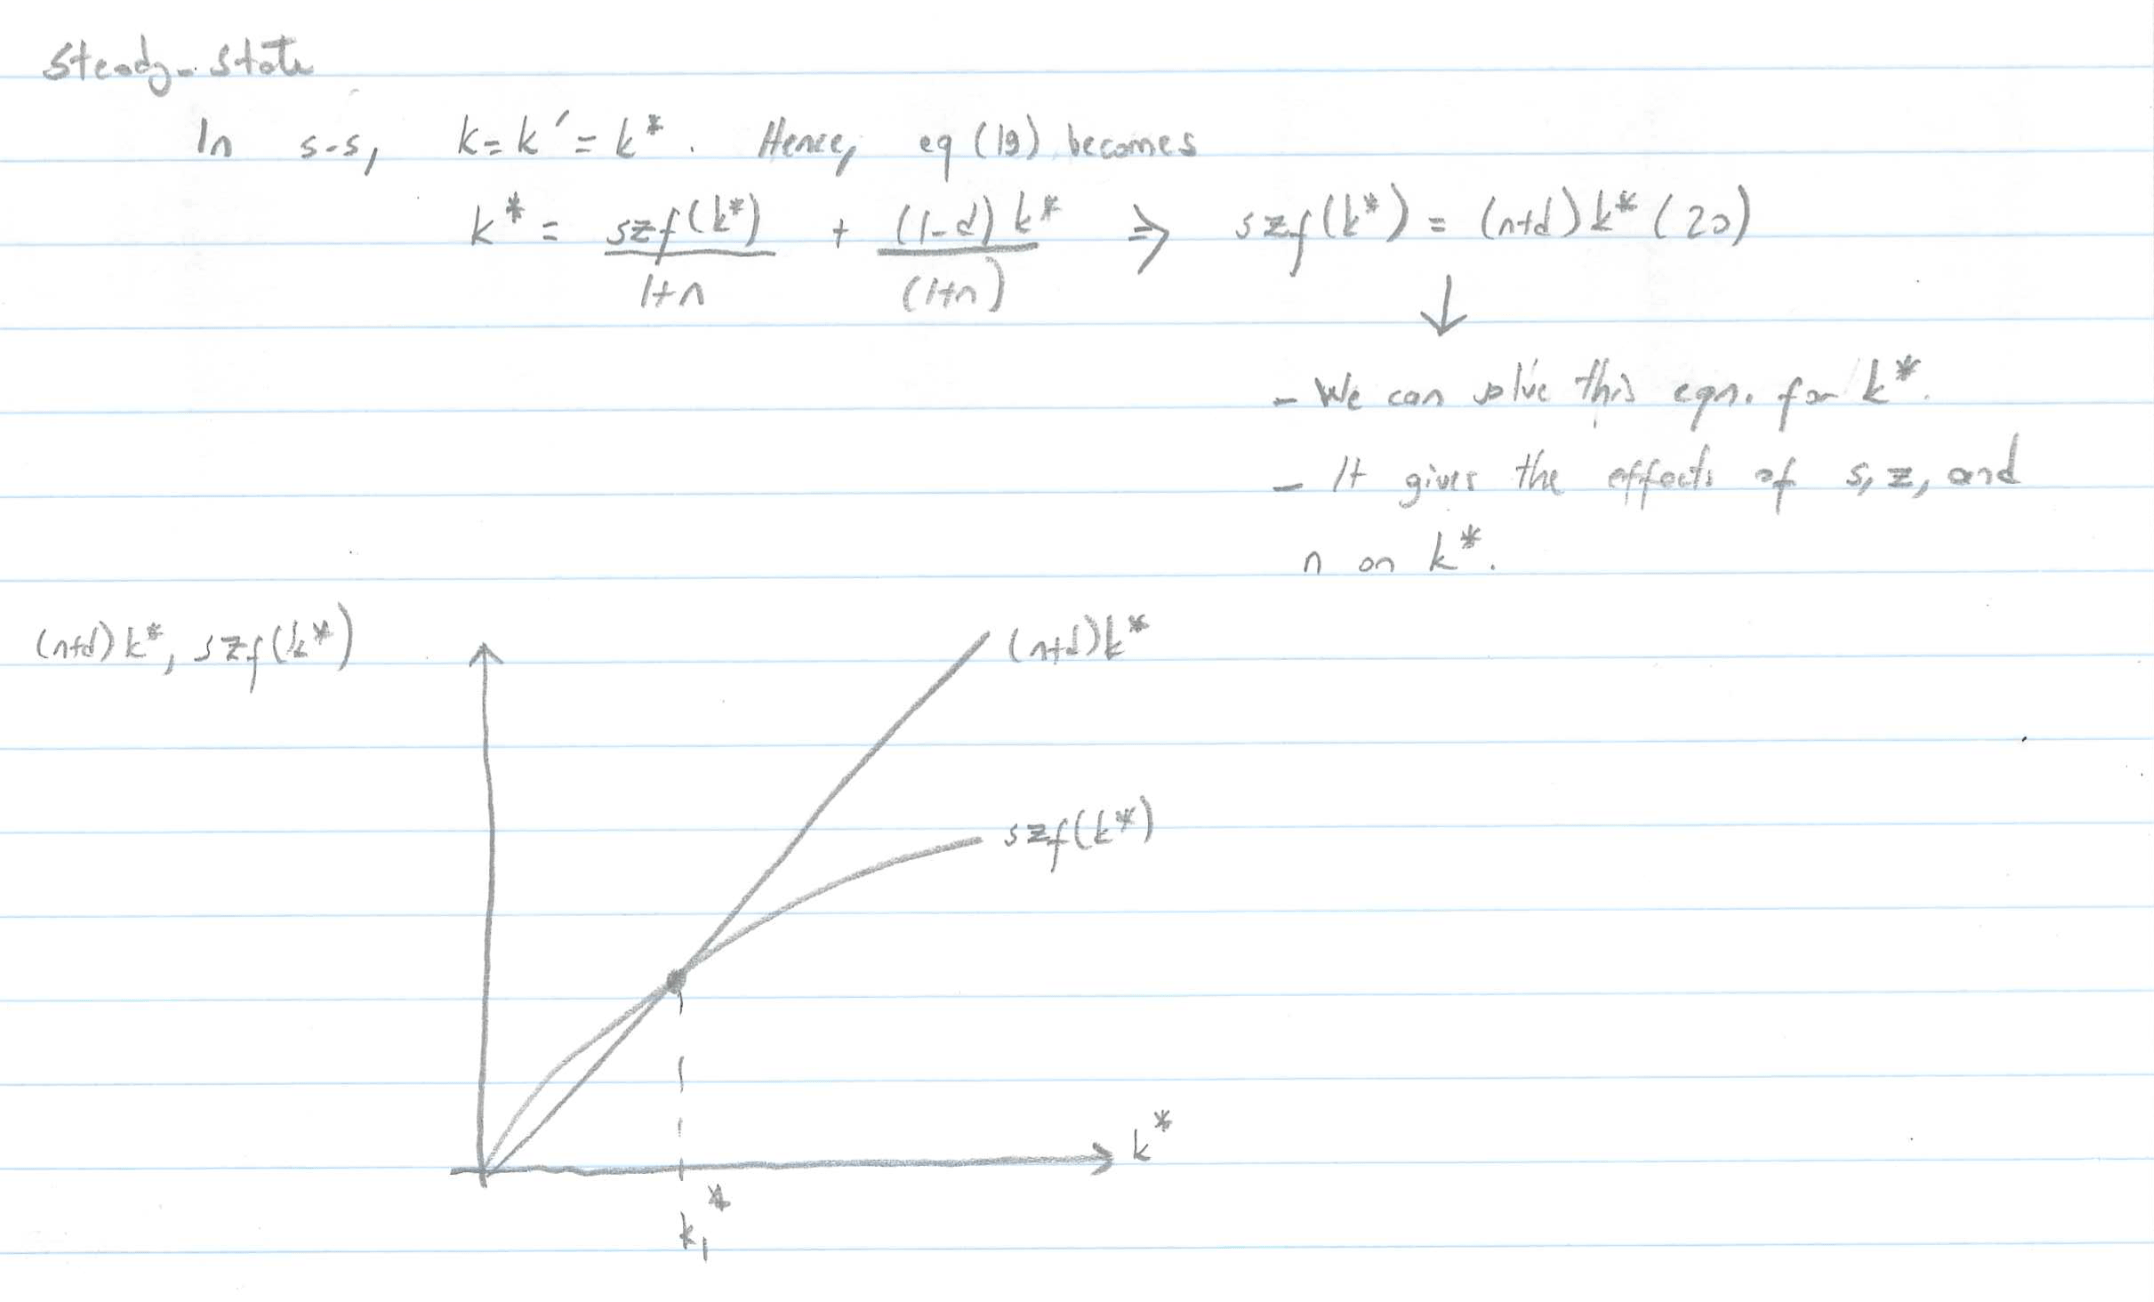 Steady-state
In s-s, k=k'=k*. Hence, eq (19) becomes
k* = szf(k*)/1+n + (1-d)k*/(1+n) ⇒ szf(k*) = (n+d)k* (20)
↓
- We can solve this eqn. for k*.
- It gives the effects of s, z, and
n on k*.
(n+d)k*, szf(k*)
(n+d)k*
szf(k*)
k*
k₁*